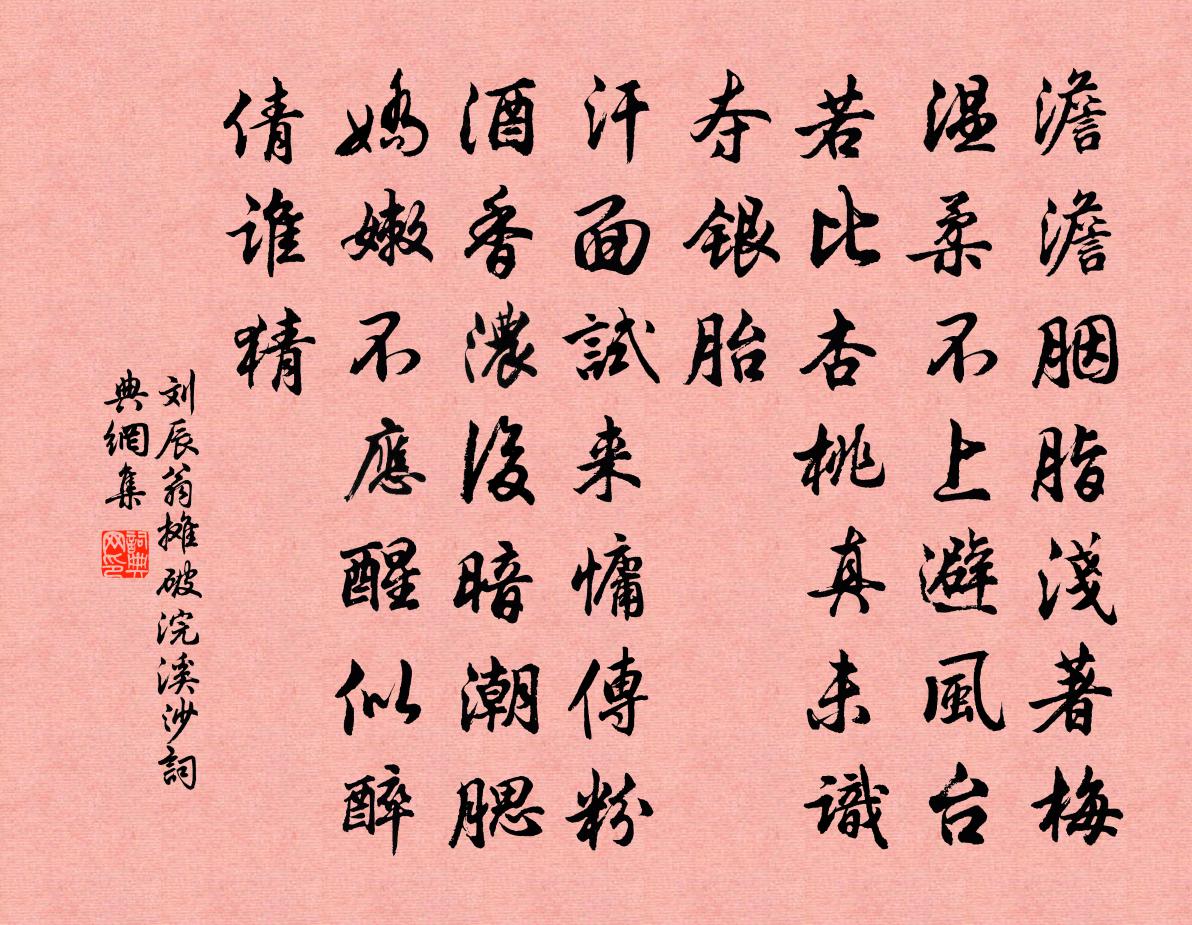 澹澹胭脂淺著梅
温柔不上避風台
若比杏桃真未識
夺銀胎
汗面試来慵傅粉
酒香濃後暗潮腮
嬌嫩不應醒似醉
倩誰猜
刘辰翁摊破浣溪沙詞
典網集
詞典
网印